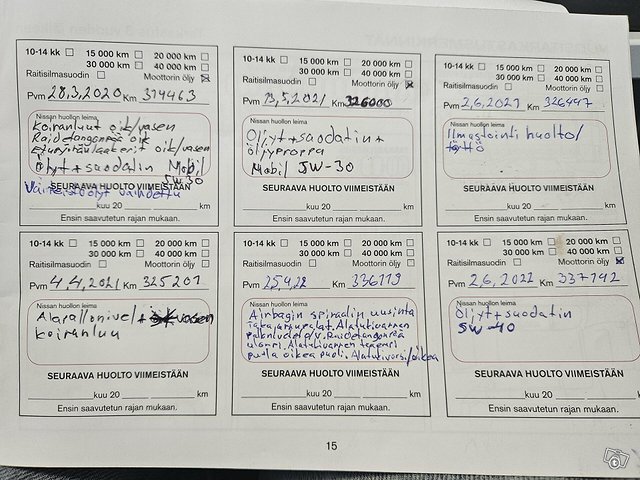 10-14 kk 15 000 km 20 000 km
30 000 km 40 000 km
Raitisilmasuodin Moottorin öljy
Pvm 28,3,2020 Km 314463
Nissan huollon leima
Koiranluut oik/vasen
Raidetangonpää oik
etupyöräulaakerit oik/vasen
Öljyt+suodatin Mobil
5W30
SEURAAVA HUOLTO VIIMEISTÄÄN
Vaihteistoöljyt vaihdettu
kuu 20 km
Ensin saavutetun rajan mukaan.
10-14 kk 15 000 km 20 000 km
30 000 km 40 000 km
Raitisilmasuodin Moottorin öljy
Pvm 13,5,2021 Km 326000
Nissan huollon leima
Öljyt+suodatin+
öljyproppa
Mobil 5W-30
SEURAAVA HUOLTO VIIMEISTÄÄN
kuu 20 km
Ensin saavutetun rajan mukaan.
10-14 kk 15 000 km 20 000 km
30 000 km 40 000 km
Raitisilmasuodin Moottorin öljy
Pvm 2,6,2021 Km 326497
Nissan huollon leima
Ilmastointi huolto/
täyttö
SEURAAVA HUOLTO VIIMEISTÄÄN
kuu 20 km
Ensin saavutetun rajan mukaan.
10-14 kk 15 000 km 20 000 km
30 000 km 40 000 km
Raitisilmasuodin Moottorin öljy
Pvm 4,4,2021 Km 325201
Nissan huollon leima
Alapallonivel + vasen
Koiranluu
SEURAAVA HUOLTO VIIMEISTÄÄN
kuu 20 km
Ensin saavutetun rajan mukaan.
10-14 kk 15 000 km 20 000 km
30 000 km 40 000 km
Raitisilmasuodin Moottorin öljy
Pvm 25,4,22 Km 336119
Nissan huollon leima
Airbagin spiraalin uusinta
takajarrupalat. Alatukivarren
o/v. Raidetangonpää
ulompi. Alatukivarren
pusla oikea puoli. Alatukivarsi/oikea
SEURAAVA HUOLTO VIIMEISTÄÄN
kuu 20 km
Ensin saavutetun rajan mukaan.
10-14 kk 15 000 km 20 000 km
30 000 km 40 000 km
Raitisilmasuodin Moottorin öljy
Pvm 2,6,2022 Km 337742
Nissan huollon leima
Öljyt+suodatin
5W-40
SEURAAVA HUOLTO VIIMEISTÄÄN
kuu 20 km
Ensin saavutetun rajan mukaan.
15